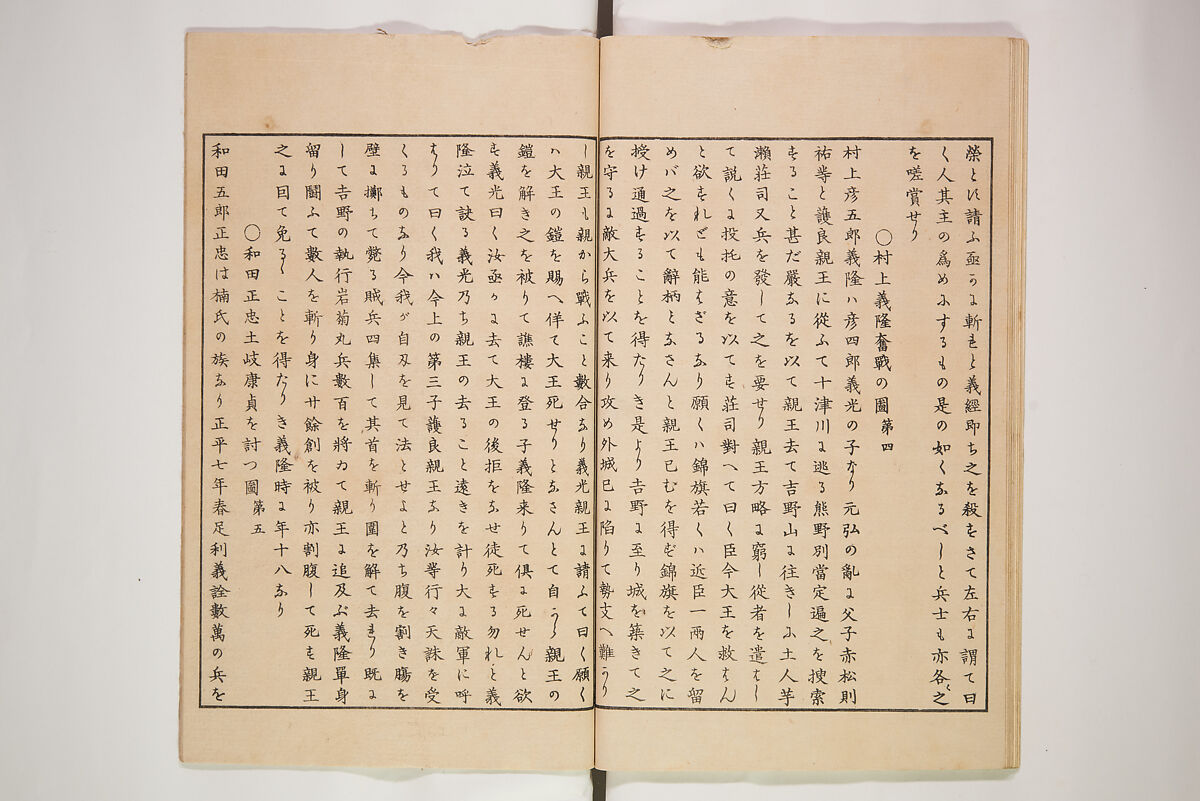 榮とは請ふ亟かに斬れと義經即ち之を殺をさて左右に謂て曰
く人其主の爲めにするもの是の如くなるべしと兵士も亦各〻之
を嗟賞せり
〇村上義隆奮戰の圖 第四
村上彦五郎義隆ハ彦四郎義光の子なり元弘の亂に父子赤松則
祐等と護良親王に從ふて十津川に逃る熊野別當定遍之を捜索
すること甚だ嚴なるを以て親王去て吉野山に往きしに土人芋
瀨莊司又兵を發して之を要せり親王方略に窮し從者を遣はし
て説くに投托の意を以てす莊司對へて曰く臣今大王を救はん
と欲すれども能はざるなり願くハ錦旗若くハ近臣一兩人を留
めバ之を以て辭柄となさんと親王已むを得ず錦旗を以て之に
授け通過することを得たりき是より吉野に至り城を築きて之
を守るに敵大兵を以て来り攻め外城已に陷りて勢支へ難かり
し親王も親から戰ふこと數合なり義光親王に請ふて曰く願く
ハ大王の鎧を賜へ佯て大王死せりとなさんとて自から親王の
鎧を解き之を被りて譙樓に登る子義隆来りて俱に死せんと欲
す義光曰く汝亟かに去て大王の後拒をなせ徒死する勿れと義
隆泣て訣る義光乃ち親王の去ること遠きを計り大に敵軍に呼
はりて曰く我ハ今上の第三子護良親王なり汝等行々天誅を受
くるものなり今我が自刄を見て法とせよと乃ち腹を割き膓を
壁に擲ちて斃る賊兵四集して其首を斬り圍を解て去れり既に
して吉野の執行岩菊丸兵數百を將ゐて親王に追及ぶ義隆單身
留り鬪ふて數人を斬り身に廿餘創を被り亦割腹して死す親王
之に因て免るゝことを得たりき義隆時に年十八なり
〇和田正忠土岐康貞を討つ圖 第五
和田五郎正忠は楠氏の族なり正平七年春足利義詮數萬の兵を